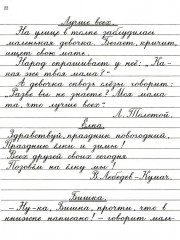 Лучше всех.
На улице в толпе заблудилась
маленькая девочка. Бегает, кричит,
ищет свою мать.
Народ спрашивает у неё: „Ка-
кая же твоя мама?"
А девочка сквозь слёзы говорит:
— Разве вы не знаете? Моя мама
та, что лучше всех.
Л. Толстой.
Ёлка.
Здравствуй, праздник новогодний,
Праздник ёлки и зимы!
Всех друзей своих сегодня
Позовём на ёлку мы!
В. Лебедев-Кумач.
Бишка.
— Ну-ка, Бишка, прочти, что в
книжке написано! — говорит маль-